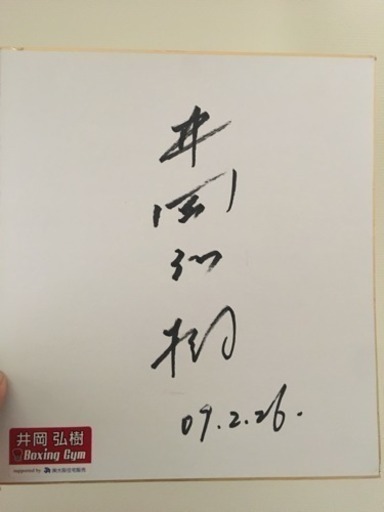 井岡弘樹
09.2.26.
井岡 弘樹
Boxing Gym
supported by